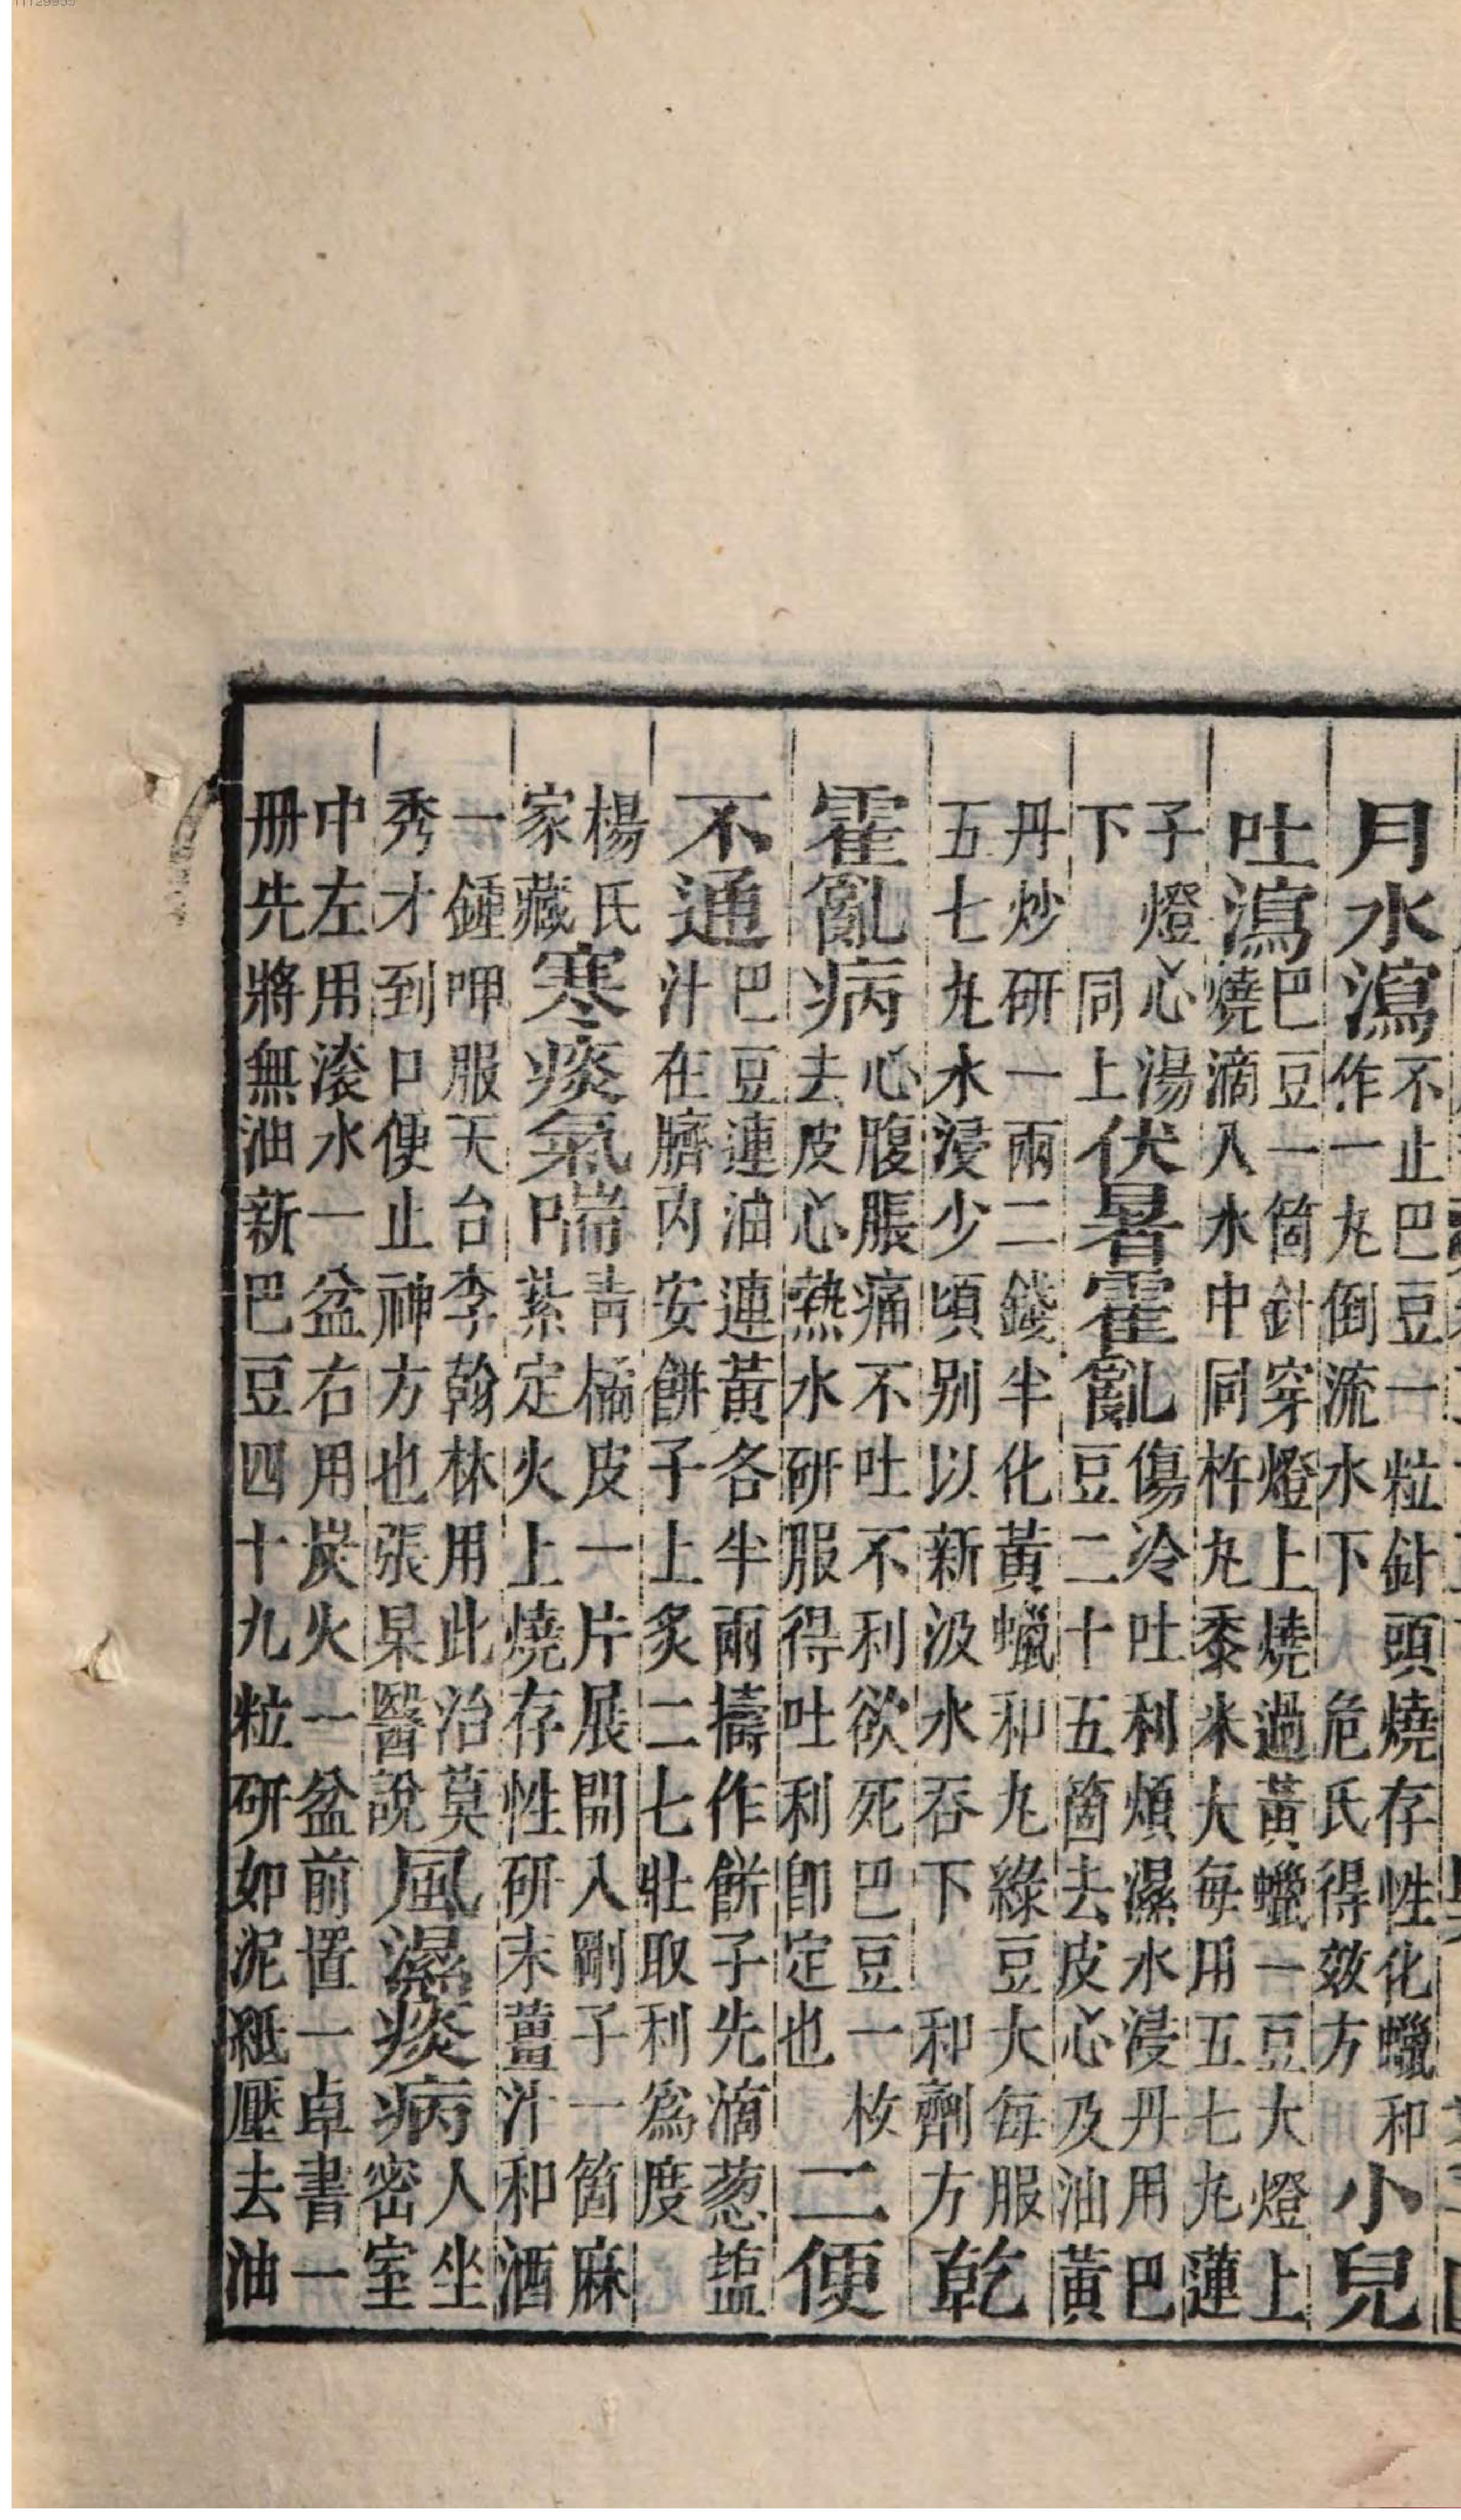 月水瀉不止巴豆一粒針頭燒存性化蠟和作一丸倒流水下 危氏得效方小兒
吐瀉巴豆一箇針穿燈上燒過黃蠟一豆大燈上燒滴入水中同杵丸黍米大每用五七丸蓮
子燈心湯下 同上伏暑霍亂傷冷吐利煩濕水浸丹用巴豆二十五箇去皮心及油黃
丹炒研一兩二錢半化黃蠟和丸綠豆大每服五七丸水浸少頃別以新汲水吞下 和劑方乾
霍亂病心腹脹痛不吐不利欲死巴豆一枚去皮心熱水研服得吐利卽定也二便
不通巴豆連油連黃各半兩擣作餅子先滴葱塩汁在臍內安餅子上炙二七壯取利爲度
楊氏家藏寒痰氣喘青橘皮一片展開入剛子一箇麻紮定火上燒存性研末薑汁和酒
一鍾呷服天台李翰林用此治莫秀才到口便止神方也張杲醫說風濕痰病人坐密室
中左用滚水一盆右用炭火一盆前置一卓書一册先將無油新巴豆四十九粒研如泥紙壓去油